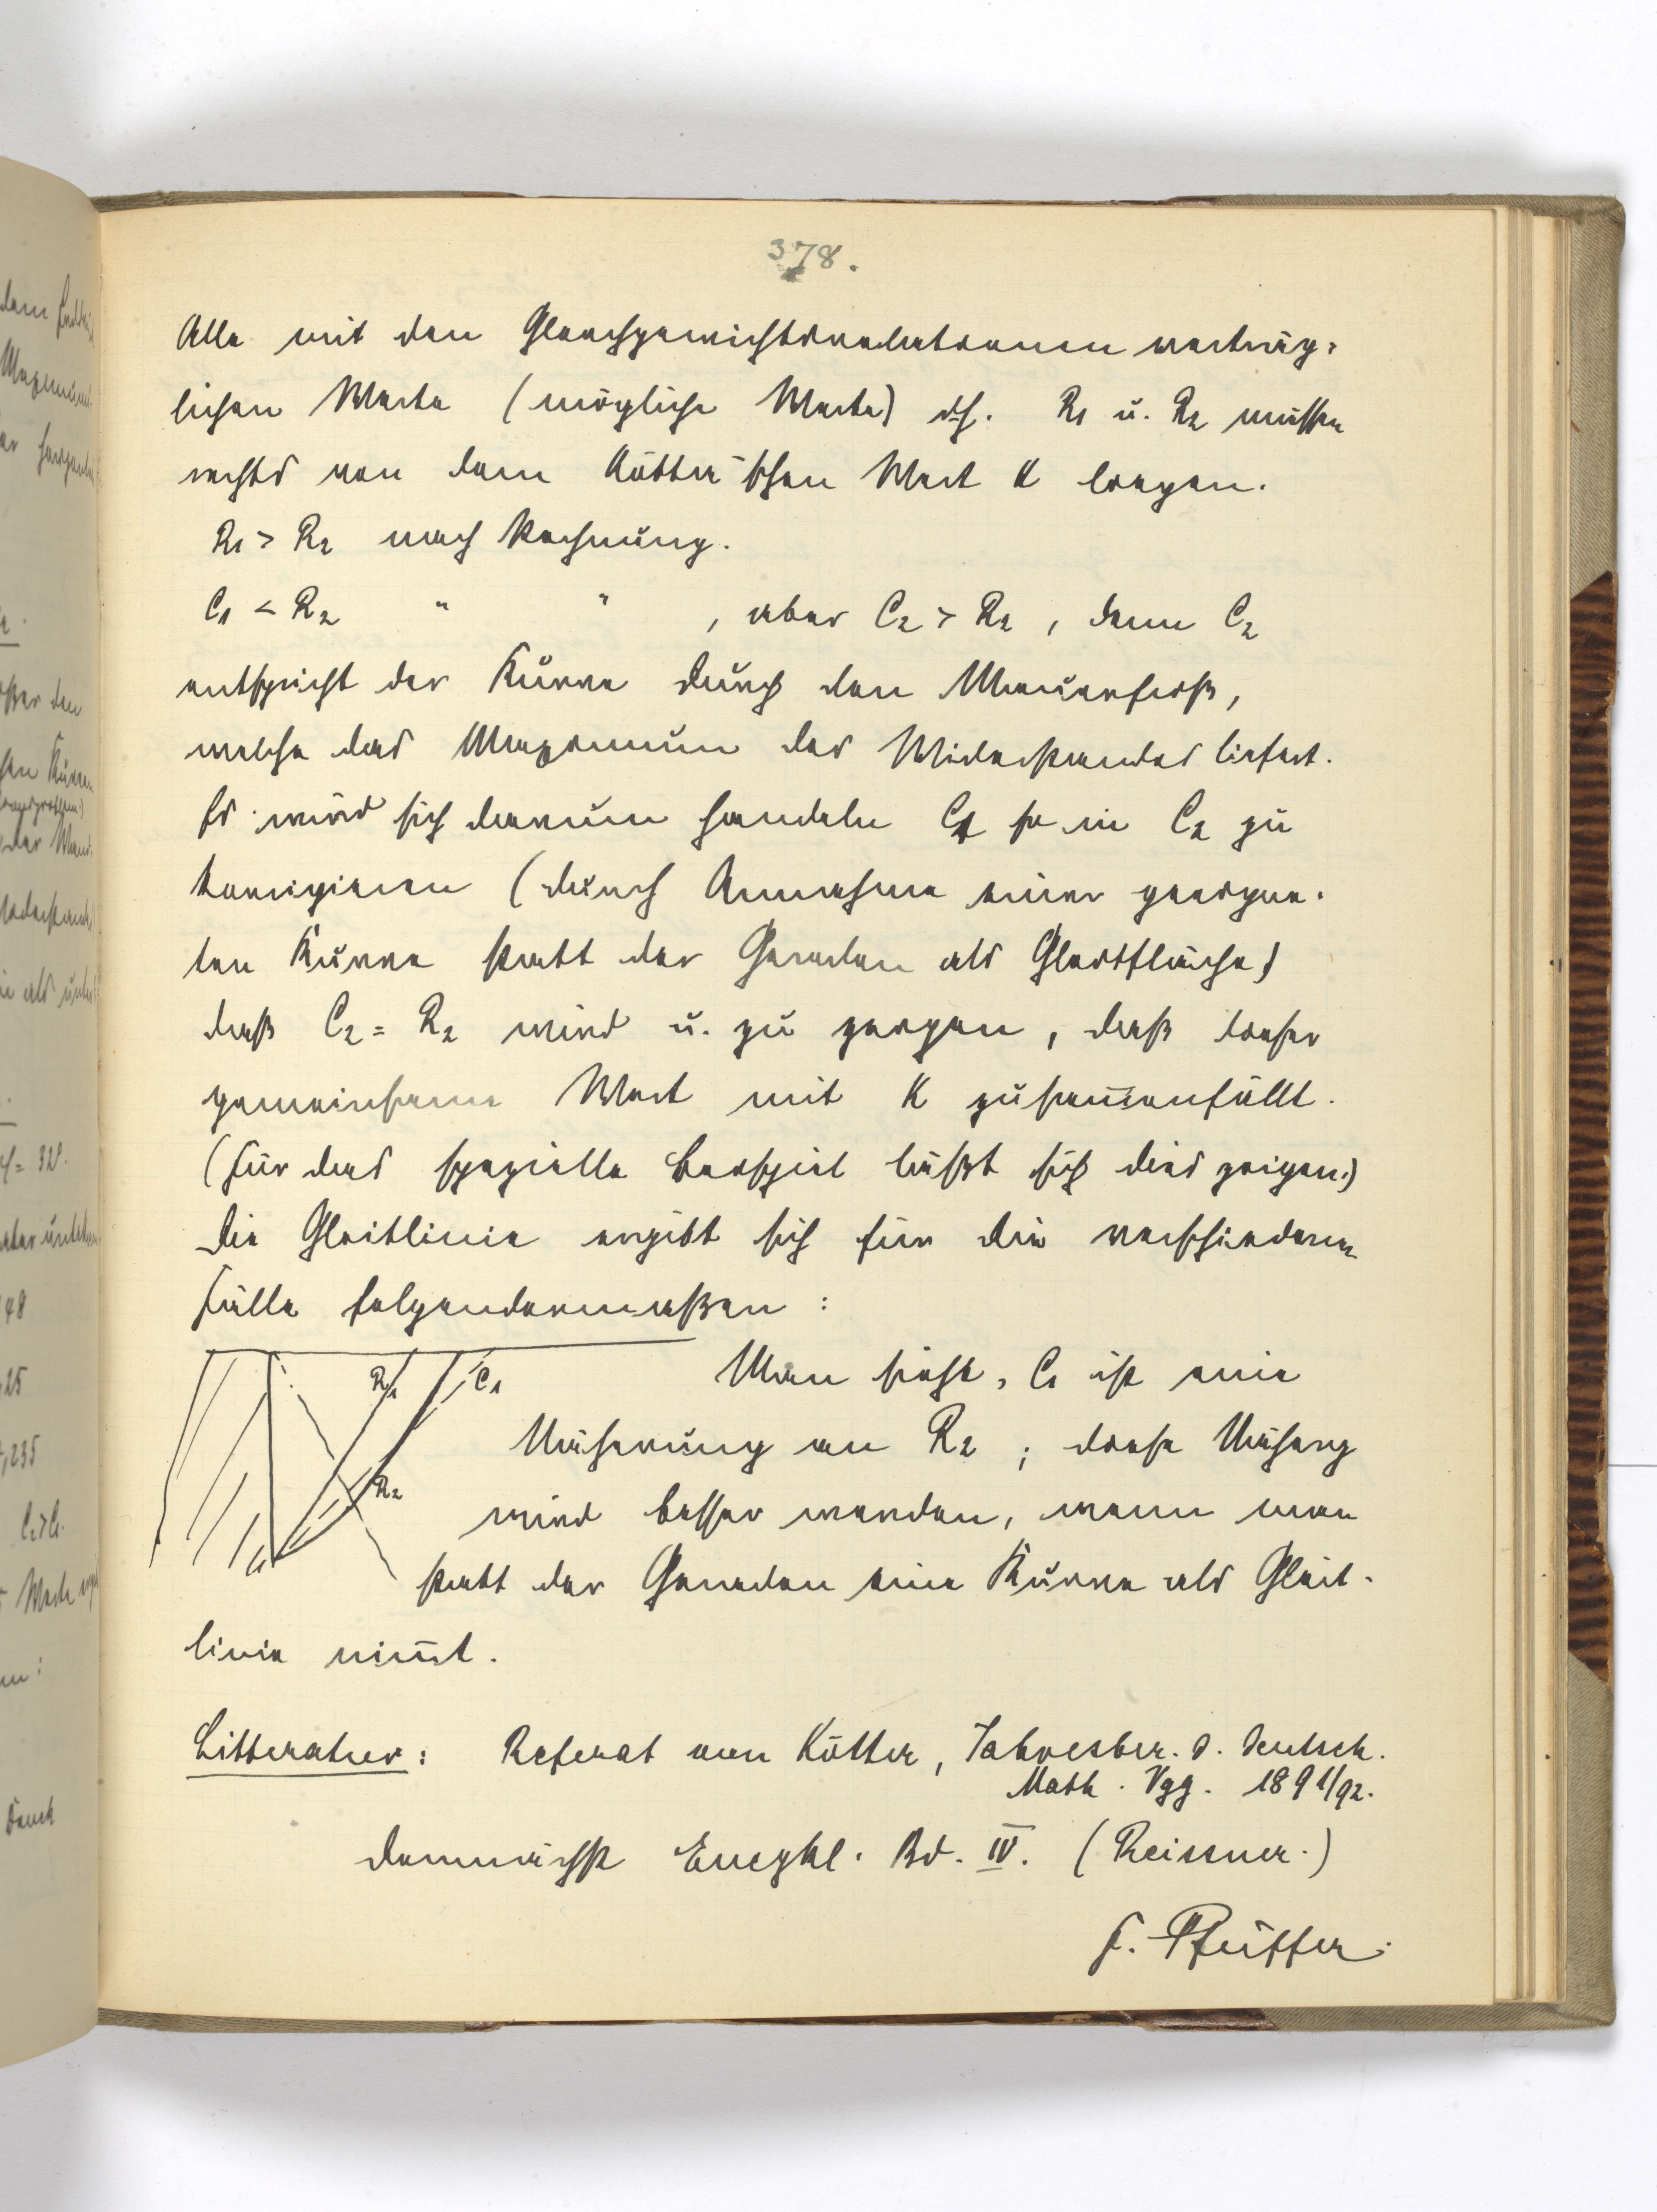 378.
Alle mit den Gleichgewichtsrelationen verträg-
lichen Werte (mögliche Werte) dh. R1 u. R2 müssen
rechts von dem Kötter'schen Wert K liegen.
R1 > R2 nach Rechnung.
C1 < R2 " " , aber C2 > R2 , denn C2
entspricht der Kurve durch den Mauerfuß,
welche das Maximum des Widerstandes liefert.
Es wird sich darum handeln C1 so in C2 zu
korrigieren (durch Annahme einer geeigne-
ten Kurve statt der Geraden als Gleitfläche)
daß C2 = R2 wird u. zu zeigen, daß dieser
gemeinsame Wert mit K zusam̅enfällt.
(Für das spezielle Beispiel läßt sich dies zeigen.)
Die Gleitlinie ergibt sich für die verschiedenen
Fälle folgendermaßen :
R1 C1
R2
Man sieht, C1 ist eine
Näherung an R2 ; diese Näherg
wird besser werden, wenn man
statt der Geraden eine Kurve als Gleit-
linie nim̅t.
Litteratur : Referat von Kötter, Jahresber. d. Deutsch.
Math. Vgg. 1891/92.
demnächst Encykl. Bd. IV. (Reissner.)
F. Pfeiffer.